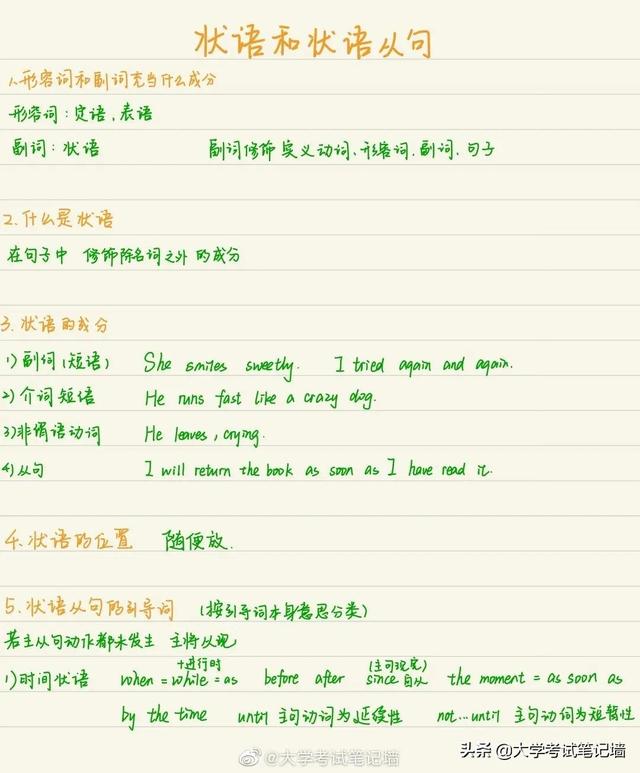 状语和状语从句
1.形容词和副词充当什么成分
形容词：定语、表语
副词：状语 副词修饰实义动词、形容词、副词、句子
2.什么是状语
在句子中 修饰除名词之外的成分
3.状语的成分
1)副词(短语) She smiles sweetly. I tried again and again.
2)介词短语 He runs fast like a crazy dog.
3)非谓语动词 He leaves, crying.
4)从句 I will return the book as soon as I have read it.
4.状语的位置 随便放.
5.状语从句的引导词 (按引导词本身意思分类)
若主从句动作都未发生 主将从现
+进行时 (主句现完)
1)时间状语 when = while = as before after since自从 the moment = as soon as
by the time until 主句动词为延续性 not...until 主句动词为短暂性
@大学考试笔记墙
头条 @大学考试笔记墙